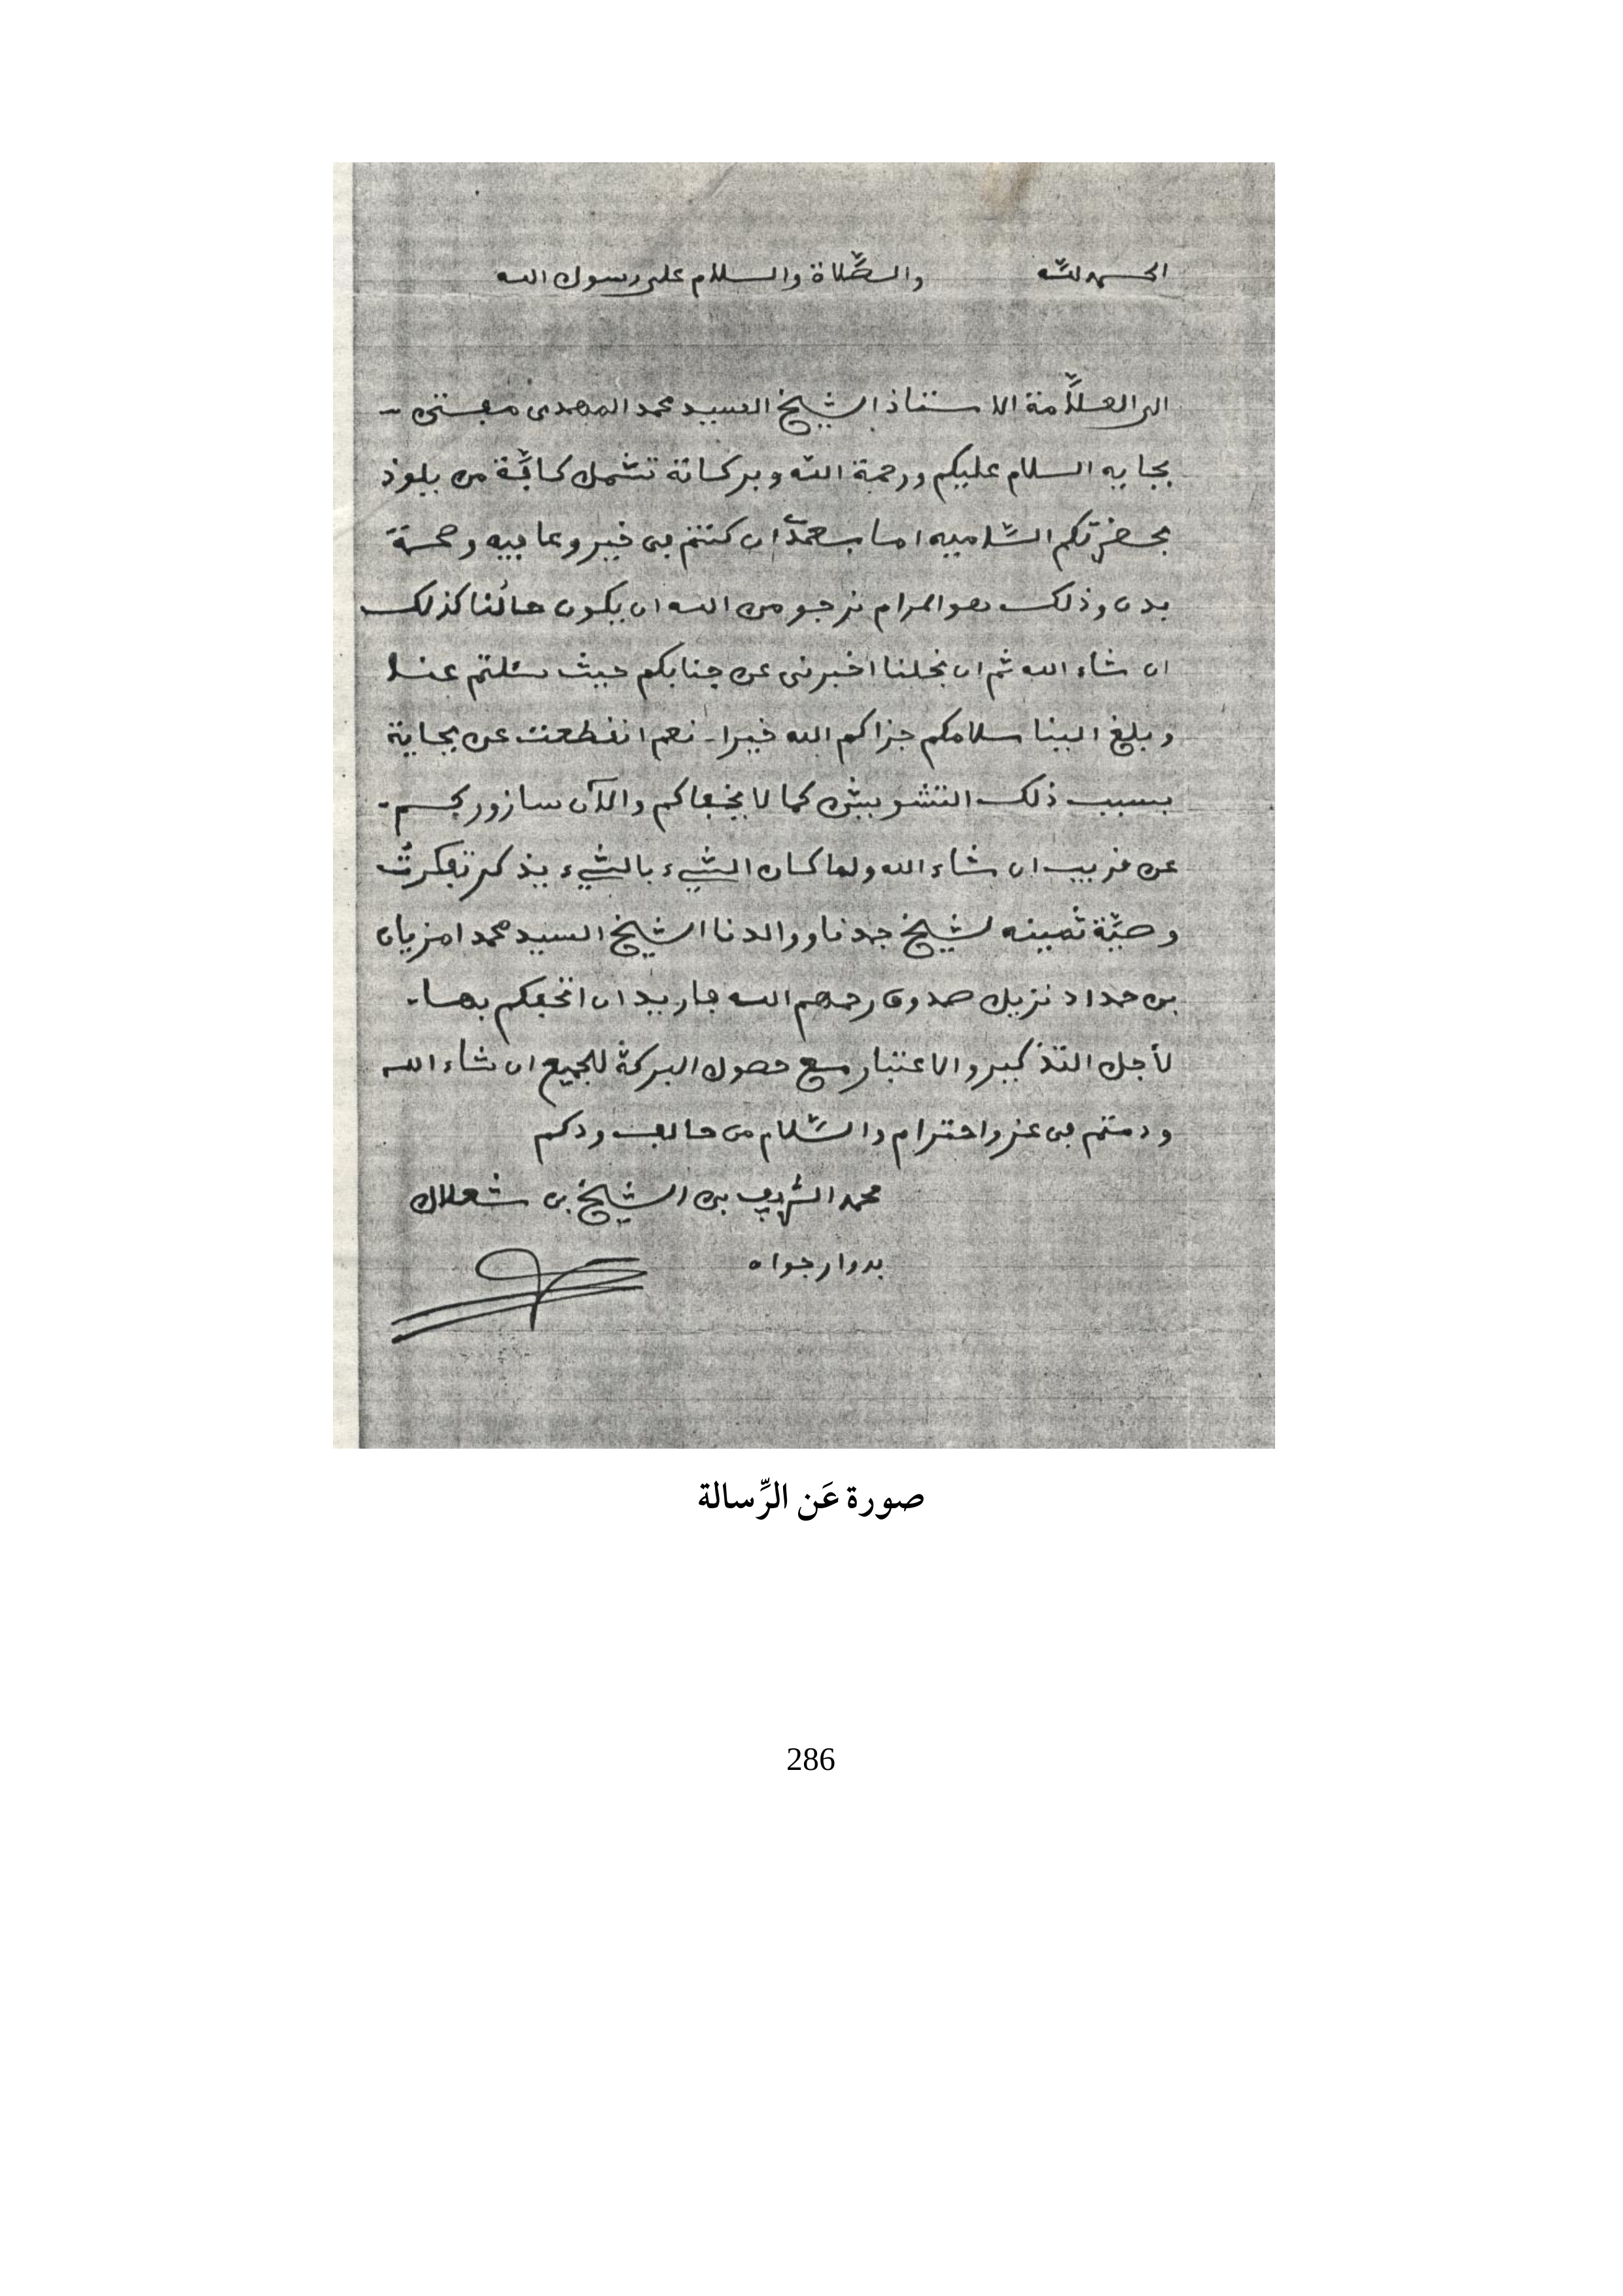 الحمد لله والصَّلاة والسلام على رسول الله
الى العلَّامة الاستاذ الشيخ السيد محمد المهدى مفتى -
بجايه السلام عليكم ورحمة الله وبركاته تشمل كافَّة من يلوذ
بحضرتكم السَّاميه اما بعد ان كنتم فى خير وعافيه وصحة
بدن وذلك هو المرام نرجو من الله ان يكون حالُنا كذلك
ان شاء الله ثم ان نجلنا اخبرنى عن جنابكم حيث سئلتم عنا
وبلغ الينا سلامكم جزاكم الله خيرا - نعم انقطعت عن بجاية
بسبب ذلك التشويش كما لا يخفاكم والآن سازوركم -
عن قريب ان شاء الله ولما كان الشيء بالشيء يذكر تفكرتُ
وصيَّة ثمينه لشيخ جدنا ووالدنا الشيخ السيد محمد امزيان
بن حداد نزيل صدوق رحمهم الله فاريد ان اتحفكم بها -
لأجل التذكير والاعتبار مع حصول البركة للجميع ان شاء الله
ودمتم فى عز واحترام والسَّلام من حالف ودكم
محمد الشريف بن الشيخ بن شعلال
بدوار جواه
صورة عَن الرِّسالة
286